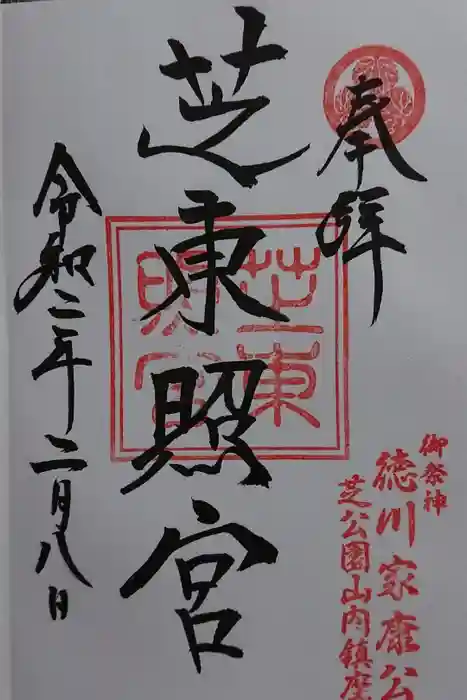 奉拝
御祭神
徳川家康公
芝公園山内鎮座
芝東照宮
芝東照宮
令和二年二月八日